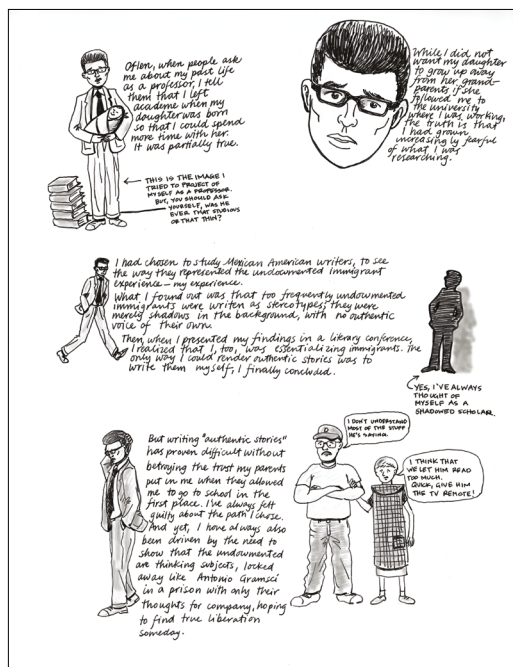 Often, when people ask
me about my past life
as a professor, I tell
them that I left
academe when my
daughter was born
so that I could spend
more time with her.
It was partially true.
THIS IS THE IMAGE I
TRIED TO PROJECT OF
MYSELF AS A PROFESSOR.
BUT, YOU SHOULD ASK
YOURSELF, WAS HE
EVER THAT STUDIOUS
OR THAT THIN?
While I did not
want my daughter
to grow up away
from her grand-
parents if she
followed me to
the university
where I was working,
the truth is that
I had grown
increasingly fearful
of what I was
researching.
I had chosen to study Mexican American writers, to see
the way they represented the undocumented immigrant
experience — my experience.
What I found out was that too frequently undocumented
immigrants were written as stereotypes; they were
merely shadows in the background, with no authentic
voice of their own.
Then, when I presented my findings in a literary conference,
I realized that I, too, was essentializing immigrants. The
only way I could render authentic stories was to
write them myself, I finally concluded.
YES, I'VE ALWAYS
THOUGHT OF
MYSELF AS A
SHADOWED SCHOLAR.
But writing "authentic stories"
has proven difficult without
betraying the trust my parents
put in me when they allowed
me to go to school in the
first place. I've always felt
guilty about the path I chose.
And yet, I have always also
been driven by the need to
show that the undocumented
are thinking subjects, locked
away like Antonio Gramsci
in a prison with only their
thoughts for company, hoping
to find true liberation
someday.
I DON'T UNDERSTAND
MOST OF THE STUFF
HE'S SAYING.
I THINK THAT
WE LET HIM READ
TOO MUCH.
QUICK, GIVE HIM
THE TV REMOTE!